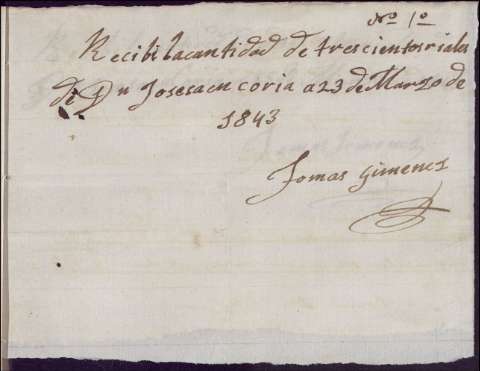 Nº 1º
Recibi lacantidad de trescientosriales
de Dn Josesaen coria a 23 de Marzo de
1843
Tomas Gimenez